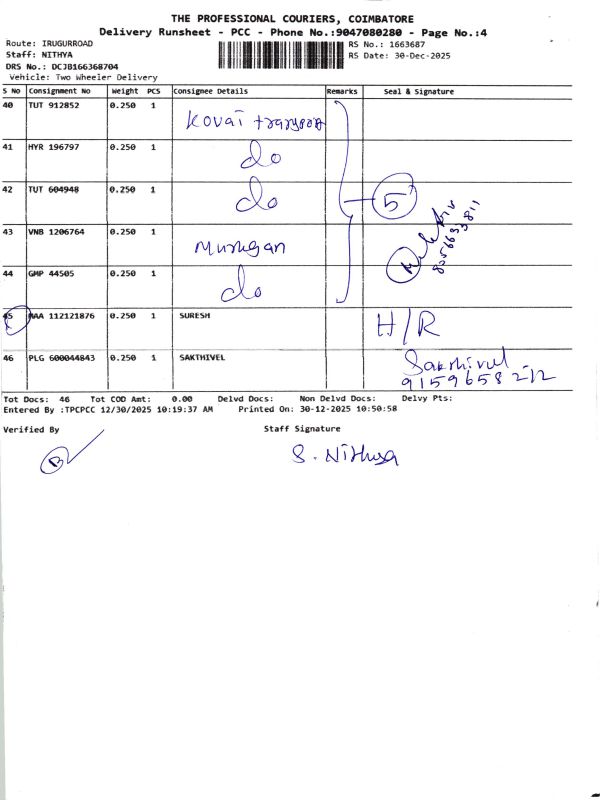 THE PROFESSIONAL COURIERS, COIMBATORE
Delivery Runsheet - PCC - Phone No.:9047080280 - Page No.:4
Route: IRUGURROAD
RS No.: 1663687
Staff: NITHYA
RS Date: 30-Dec-2025
DRS No.: DCJB166368704
Vehicle: Two Wheeler Delivery
S No Consignment No Weight PCS Consignee Details Remarks Seal & Signature
40 TUT 912852 0.250 1 Kovai
41 HYR 196797 0.250 1 do
42 TUT 604948 0.250 1 do 5
43 VNB 1206764 0.250 1 Murugan
44 GMP 44505 0.250 1 do
45 MAA 112121876 0.250 1 SURESH H/R
46 PLG 600044843 0.250 1 SAKTHIVEL Sakthivel
9159658212
Tot Docs: 46 Tot COD Amt: 0.00 Delvd Docs: Non Delvd Docs: Delvy Pts:
Entered By :TPCPCC 12/30/2025 10:19:37 AM Printed On: 30-12-2025 10:50:58
Verified By Staff Signature
S. Nithya